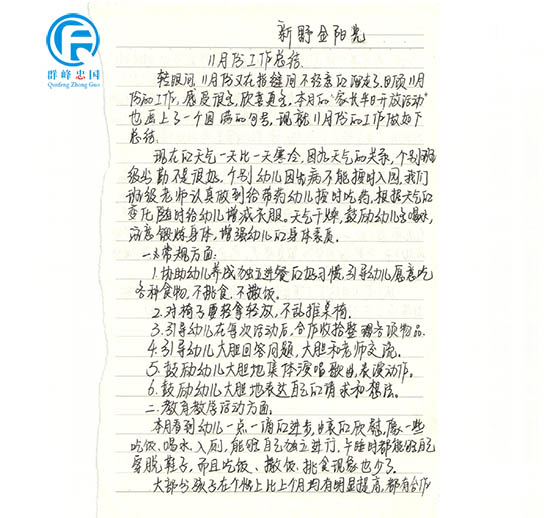 群峰忠国
Qunfeng Zhong Guo
新野金阳光
11月份工作总结
转眼间,11月份又在指缝间不经意的溜走了,回顾11月
份的工作,感受很多,欣喜更多。本月的“家长半日开放活动”
也画上了一个圆满的句号,现就11月份的工作做如下
总结:
现在的天气一天比一天寒冷,因为天气的关系,个别班
级出勤不是很好,个别幼儿因生病不能按时入园,我们
班级老师认真做到给带药幼儿按时吃药,根据天气的
变化随时给幼儿增减衣服。天气干燥,鼓励幼儿多喝水,
注意锻炼身体,增强幼儿的身体素质。
一、常规方面:
1.协助幼儿养成独立进餐的好习惯,引导幼儿愿意吃
各种食物,不挑食,不撒饭。
2.对椅子要轻拿轻放,不乱推桌椅。
3.引导幼儿在每次活动后,合作收拾整理各项物品。
4.引导幼儿大胆回答问题,大胆和老师交流。
5.鼓励幼儿大胆地集体演唱歌曲,表演动作。
6.鼓励幼儿大胆地表达自己的请求和想法。
二、教育教学活动方面:
本月看到幼儿一点一滴的进步,由衷的欣慰,像一些
吃饭、喝水、入厕,能够自己独立进行,午睡时都能够自己
穿脱鞋子,而且吃饭、撒饭、挑食现象也少了。
大部分孩子在个性上比上个月均有明显提高,都有合作